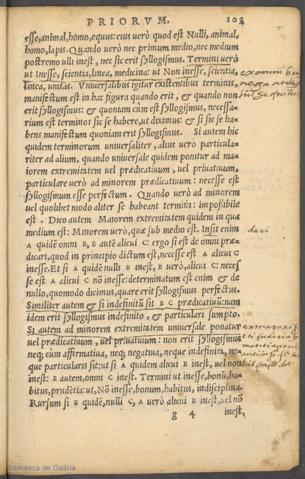 PRIORVM. 103
esse, animal, homo, equus: eius verò quod est Nulli, animal,
homo, lapis. Quando verò nec primum medio, nec medium
postremo ulli inest, nec sic erit syllogismus. Termini verò
ut Inesse, scientia, linea, medicina: ut Non inesse, scientia,
linea, unitas. Vniversalibus igitur existentibus terminis,
manifestum est in hac figura quando erit, & quando non
erit syllogismus: & quoniam cum est syllogismus, necessa-
rium est terminos sic se habere, ut diximus: & si sic se ha-
bens manifestum quoniam erit syllogismus. Si autem hic
quidem terminorum universaliter, alius verò particula-
riter ad alium, quando universale quidem ponitur ad ma-
iorem extremitatem vel prædicativum, vel privativum,
particulare verò ad minorem prædicativum: necesse est
syllogismum esse perfectum. Quando verò ad minorem
vel quolibet modo aliter se habeant termini: impossibile
est. Dico autem Maiorem extremitatem quidem in qua
medium est: Minorem verò, quæ sub medio est. Insit enim
A quidē omni B, B autē alicui C: ergo si est de omni præ-
dicari, quod in principio dictum est, necesse est A alicui C
inesse. Et si A quidē nulli B inest, B verò, alicui C: neces
se est A alicui C nō inesse: determinatum est enim & de
nullo, quomodo dicimus, quare erit syllogismus perfectus.
Similiter autem & si indefinitū sit B C prædicativū: nam
idem erit syllogismus indefinito, & particulari sumpto.
Si autem ad minorem extremitatem universale ponatur
vel prædicativum, vel privativum: non erit syllogismus
neq; cum affirmativa, neq; negativa, neque indefinita, ne-
que particularis sit: ut si A quidem alicui B inest, vel non
inest: B autem, omni C inest. Termini ut inesse, bonū, ha-
bitus, prudētia: ut, Nō inesse, bonum, habitus, indisciplina.
Rursum si B quidē, nulli C, A verò alicui B inest, vel nō
g 4 inest,
darii
Biblioteca de Galicia